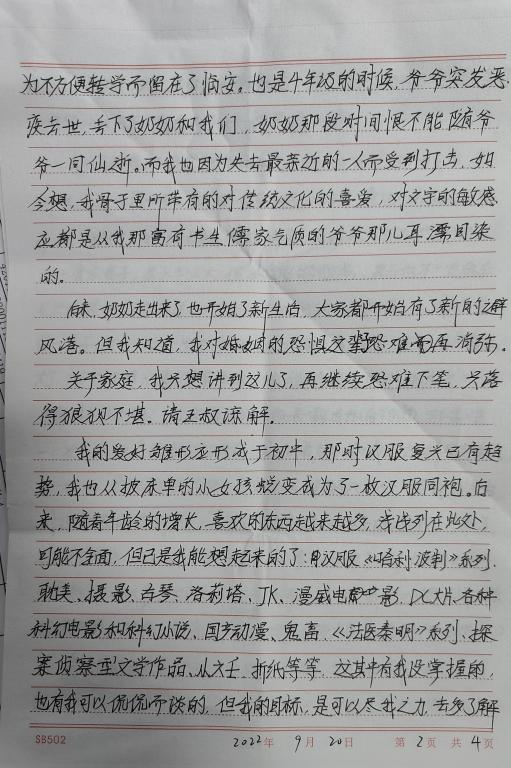 为不方便转学而留在了临安。也是4年级的时候,爷爷突发恶
疾去世,丢下了奶奶和我们,奶奶那段时间恨不能随爷
爷一同仙逝。而我也因为失去最亲近的一人而受到打击,如
今想,我骨子里所带有的对传统文化的喜爱,对文字的敏感
应都是从我那富有书生儒家气质的爷爷那儿耳濡目染
的。
后来,奶奶走出来了,也开始了新生活,大家都开始有了新的避
风港。但我知道,我对婚姻的恐惧这辈恐难再消弥。
关于家庭,我只想讲到这儿了,再继续恐难下笔,只落
得狼狈不堪。请王叔谅解。
我的爱好雏形应形成于初中,那时汉服复兴已有趋
势,我也从披床单的小女孩蜕变成为了一枚汉服同袍。后
来,随着年龄的增长,喜欢的东西越来越多,浅浅列在此处,
可能不全面,但已是我能想起来的了:汉服、《哈利·波特》系列、
耽美、摄影、古琴、洛莉塔、JK、漫威电影、DC大片、各种
科幻电影和科幻小说、国产动漫、鬼畜、《法医秦明》系列、探
案侦察型文学作品、折纸等等,这其中有我没掌握的,
也有我可以侃侃而谈的,但我的目标,是可以尽我之力,去多了解
SB502 2022年 9月 20日 第2页 共4页